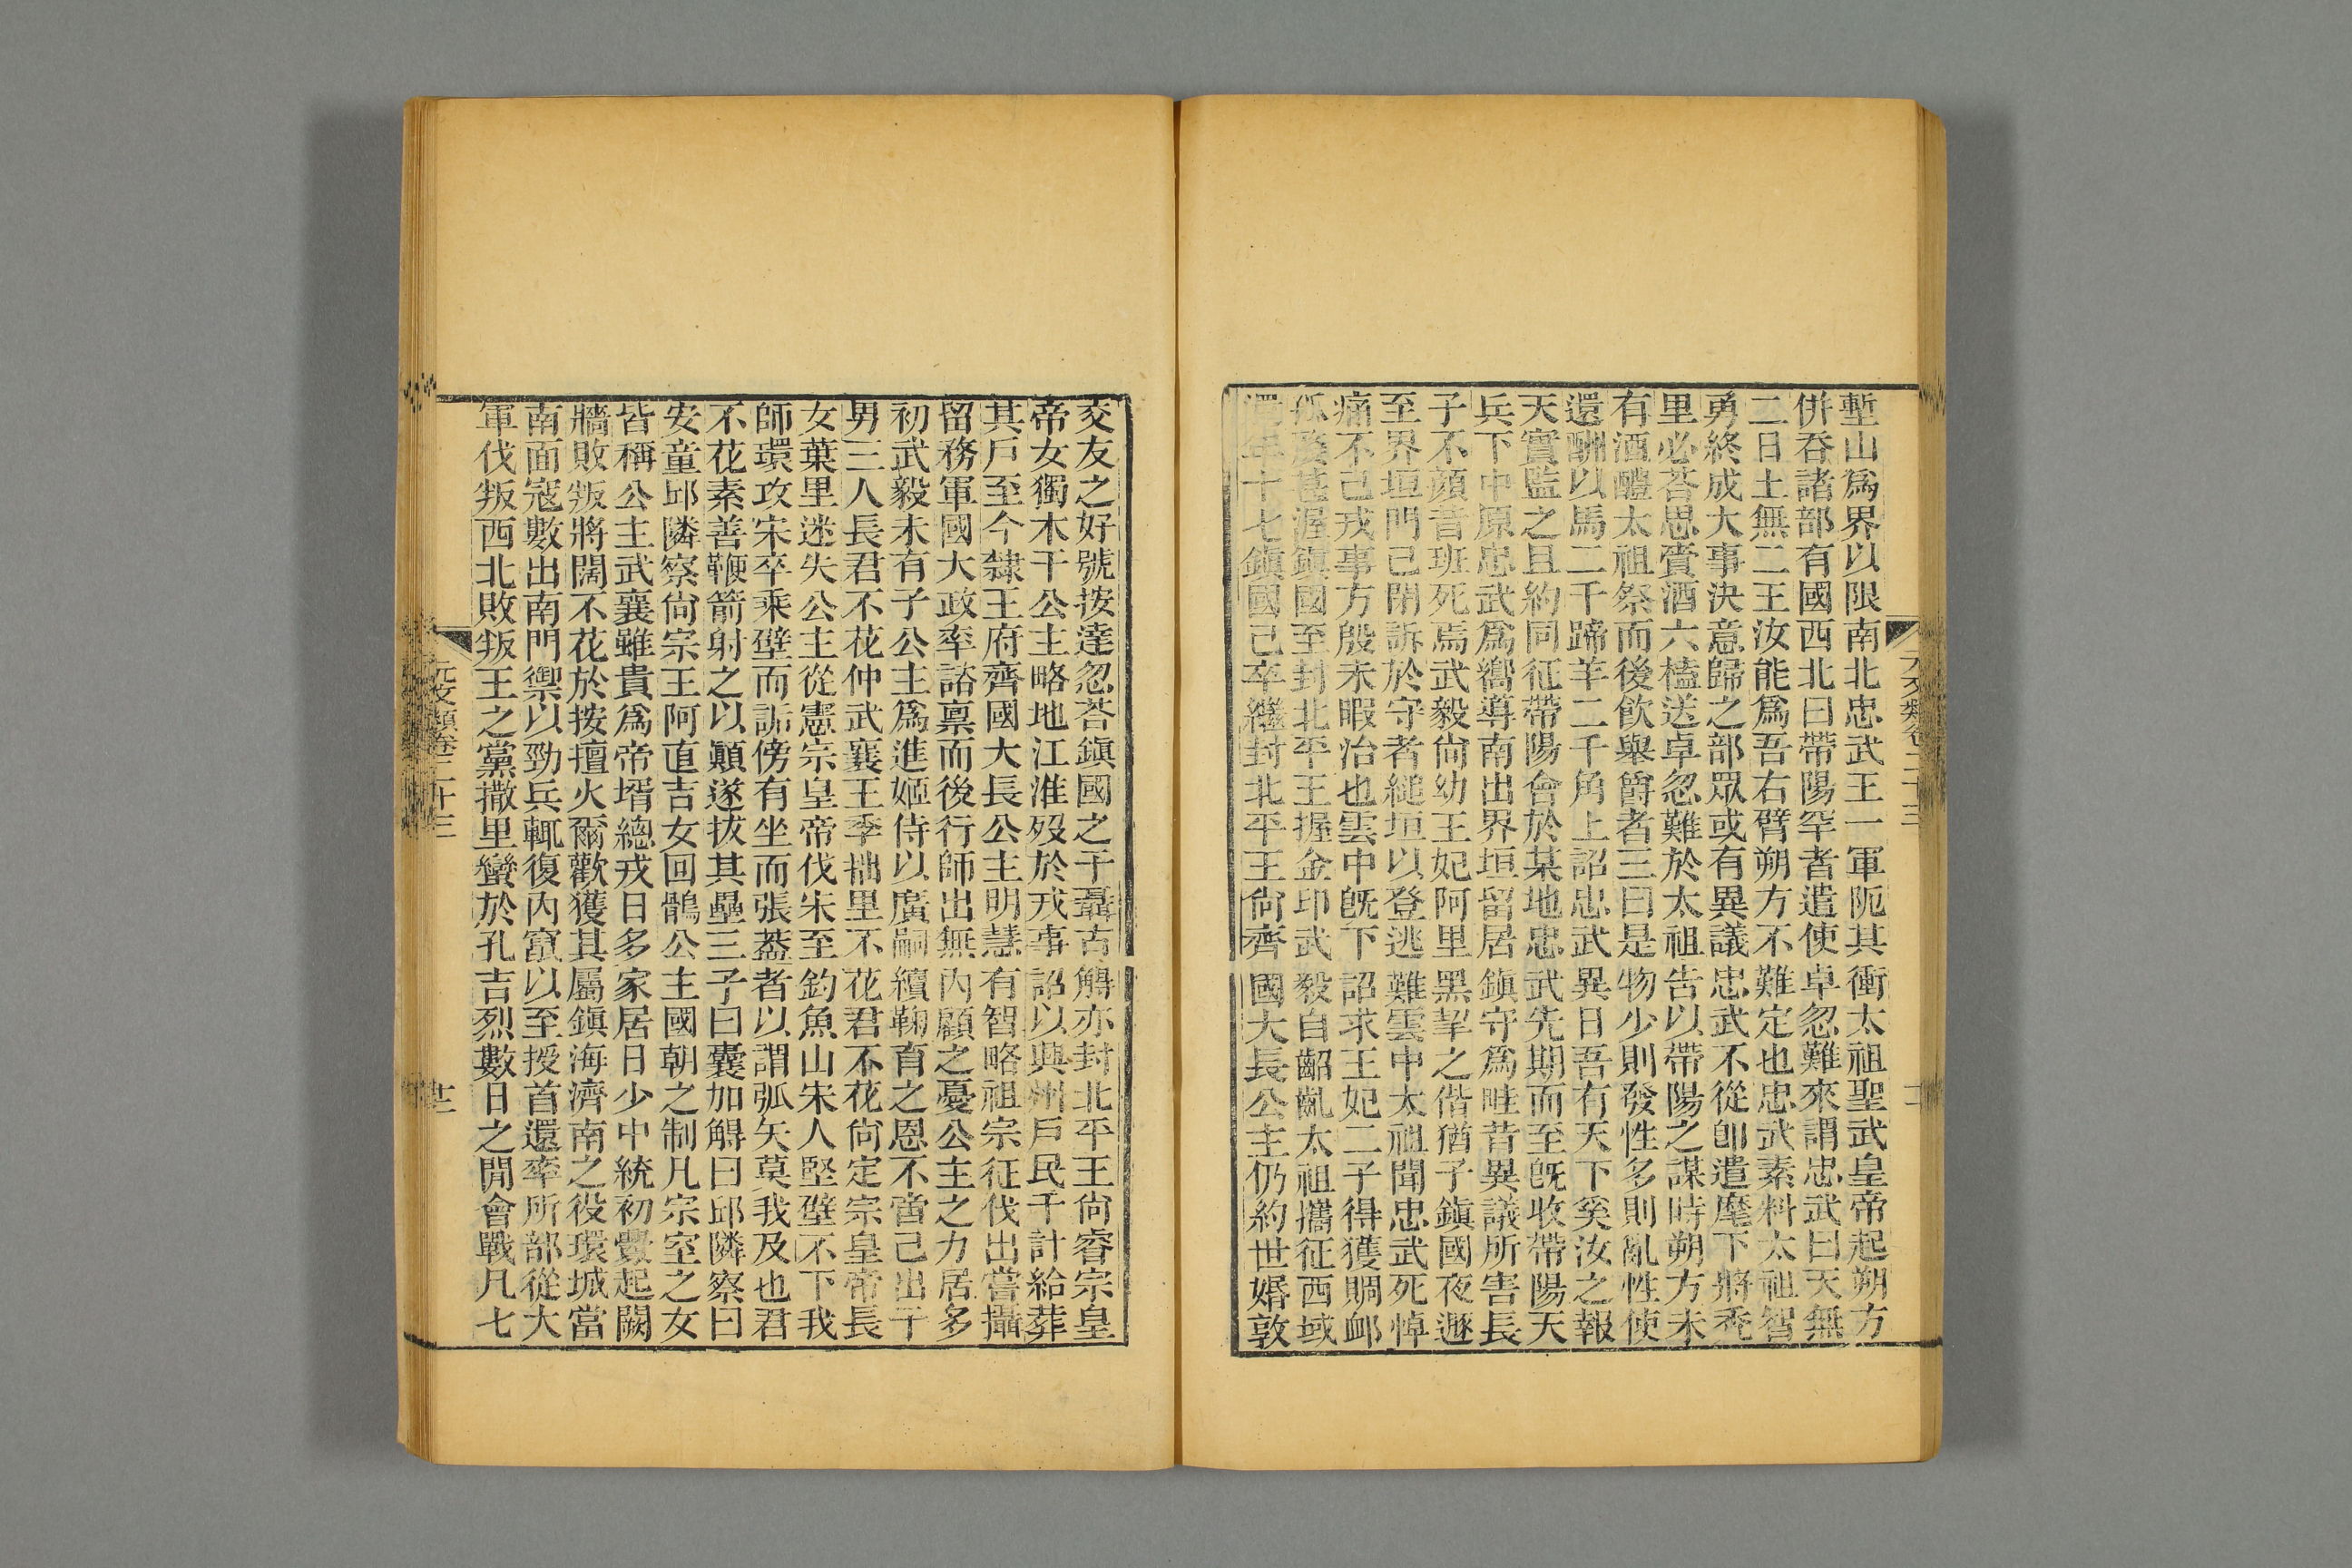 塹山爲界以限南北忠武王一軍阨其衝太祖聖武皇帝起朔方
併吞諸部有國西北曰帶陽罕者遣使卓忽難來謂忠武曰天無
二日土無二王汝能爲吾右臂朔方不難定也忠武素料太祖智
勇終成大事決意歸之部眾或有異議忠武不從卽遣麾下將禿
里必荅思賫酒六榼送卓忽難於太祖告以帶陽之謀時朔方未
有酒醴太祖祭而後飲舉爵者三曰是物少則發性多則亂性使
還酬以馬二千蹄羊二千角上詔忠武異日吾有天下奚汝之報
天實監之且約同征帶陽會於某地忠武先期而至旣收帶陽天
兵下中原忠武爲嚮導南出界垣留居鎭守爲畦昔異議所害長
子不顏昔班死焉武毅尙幼王妃阿里黑挈之偕猶子鎭國夜遯
至界垣門已閉訴於守者縋垣以登逃難雲中太祖聞忠武死悼
痛不已戎事方殷未暇治也雲中旣下詔求王妃二子得獲賙卹
孤嫠甚渥鎭國至封北平王握金印武毅自齠齔太祖攜征西域
還年十七鎭國已卒繼封北平王尙齊國大長公主仍約世婚敦
元文類卷二十三
交友之好號按達忽荅鎭國之子聶古䚟亦封北平王尙睿宗皇
帝女獨木干公主略地江淮歿於戎事詔以興州戶民千計給葬
其戶至今隸王府齊國大長公主明慧有智略祖宗征伐出嘗攝
留務軍國大政率諮稟而後行師出無內顧之憂公主之力居多
初武毅未有子公主爲進姬侍以廣嗣續鞠育之恩不啻己出子
男三人長君不花仲武襄王季拙里不花君不花尙定宗皇帝長
女葉里迷失公主從憲宗皇帝伐宋至釣魚山宋人堅壁不下我
師環攻宋卒乘壁而詬傍有坐而張葢者以謂弧矢莫我及也君
不花素善鞭箭射之以顚遂拔其壘三子曰囊加䚟曰邱隣察曰
安童邱隣察尙宗王阿直吉女回鶻公主國朝之制凡宗室之女
皆稱公主武襄雖貴爲帝壻總戎日多家居日少中統初釁起鬩
牆敗叛將闊不花於按擅火爾歡獲其屬鎭海濟南之役環城當
南面寇數出南門禦以勁兵輒復內竄以至授首還率所部從大
軍伐叛西北敗叛王之黨撒里蠻於孔吉烈數日之閒會戰凡七
元文類卷二十三